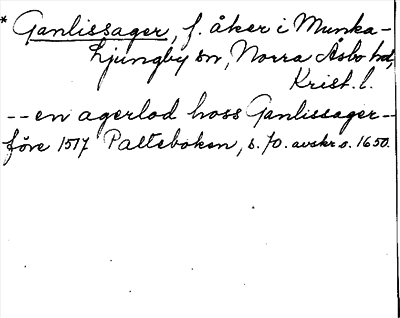 * Ganlissager, f. åker i Munka-
Ljungby sn, Norra Åsbo hd,
Krist. l.
-- en agerlod hoss Ganlissager --
före 1517 Palteboken, s. 70. avskr o. 1650.